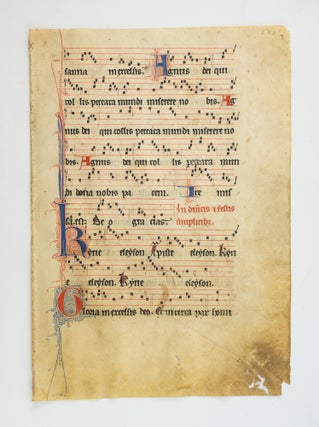 sanna in excelsis. Agnus dei qui
tol lis peccata mundi miserere no bis. Ag
nus dei qui tollis peccata mundi miserere no
bis. Agnus dei qui tol lis peccata mun
di dona nobis pa cem. Ite mis
sa est. De o gra cias. In
simplicibus
Kyrie eleyson. Xpiste eleyson. Kyri
e eleyson. Kyrie eleyson.
Gloria in excelsis deo. Et in terra pax homi